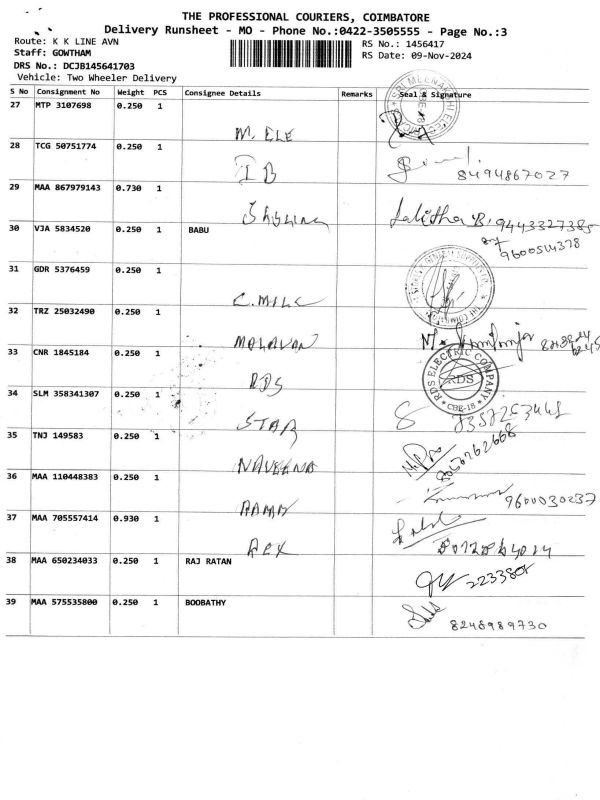 THE PROFESSIONAL COURIERS, COIMBATORE
Delivery Runsheet - MO - Phone No.:0422-3505555 - Page No.:3
Route: K K LINE AVN
RS No.: 1456417
Staff: GOWTHAM
RS Date: 09-Nov-2024
DRS No.: DCJB145641703
Vehicle: Two Wheeler Delivery
S No Consignment No Weight PCS Consignee Details Remarks Seal & Signature
27 MTP 3107698 0.250 1
M. ELE
28 TCG 50751774 0.250 1
I B 8494867027
29 MAA 867979143 0.730 1
Lalitha B. 9443327385
30 VJA 5834520 0.250 1 BABU
9600514378
31 GDR 5376459 0.250 1
C. MILL
32 TRZ 25032490 0.250 1
MALAVAN
33 CNR 1845184 0.250 1
RDS
RDS ELECTRIC COMPANY
RDS
CBE-18
34 SLM 358341307 0.250 1
STAR
35 TNJ 149583 0.250 1
NAVEENA
36 MAA 110448383 0.250 1
9600030237
37 MAA 705557414 0.930 1
REX
38 MAA 650234033 0.250 1 RAJ RATAN
39 MAA 575535800 0.250 1 BOOBATHY
8248989730